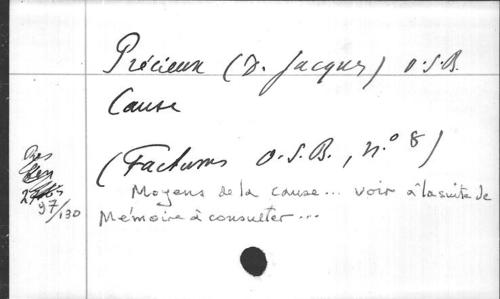 Précieux (D. Jacques) O.S.B.
Cause
(Factums O.S.B., n.° 8)
Moyens de la cause... voir à la suite de
Mémoire à consulter...
Res
97/130